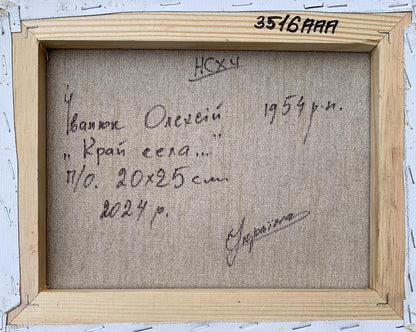 3516AAA
НСХУ
Іванюк Олексій 1954 р.н.
„Край села..."
п/о. 20x25 см.
2024 р.
Україна